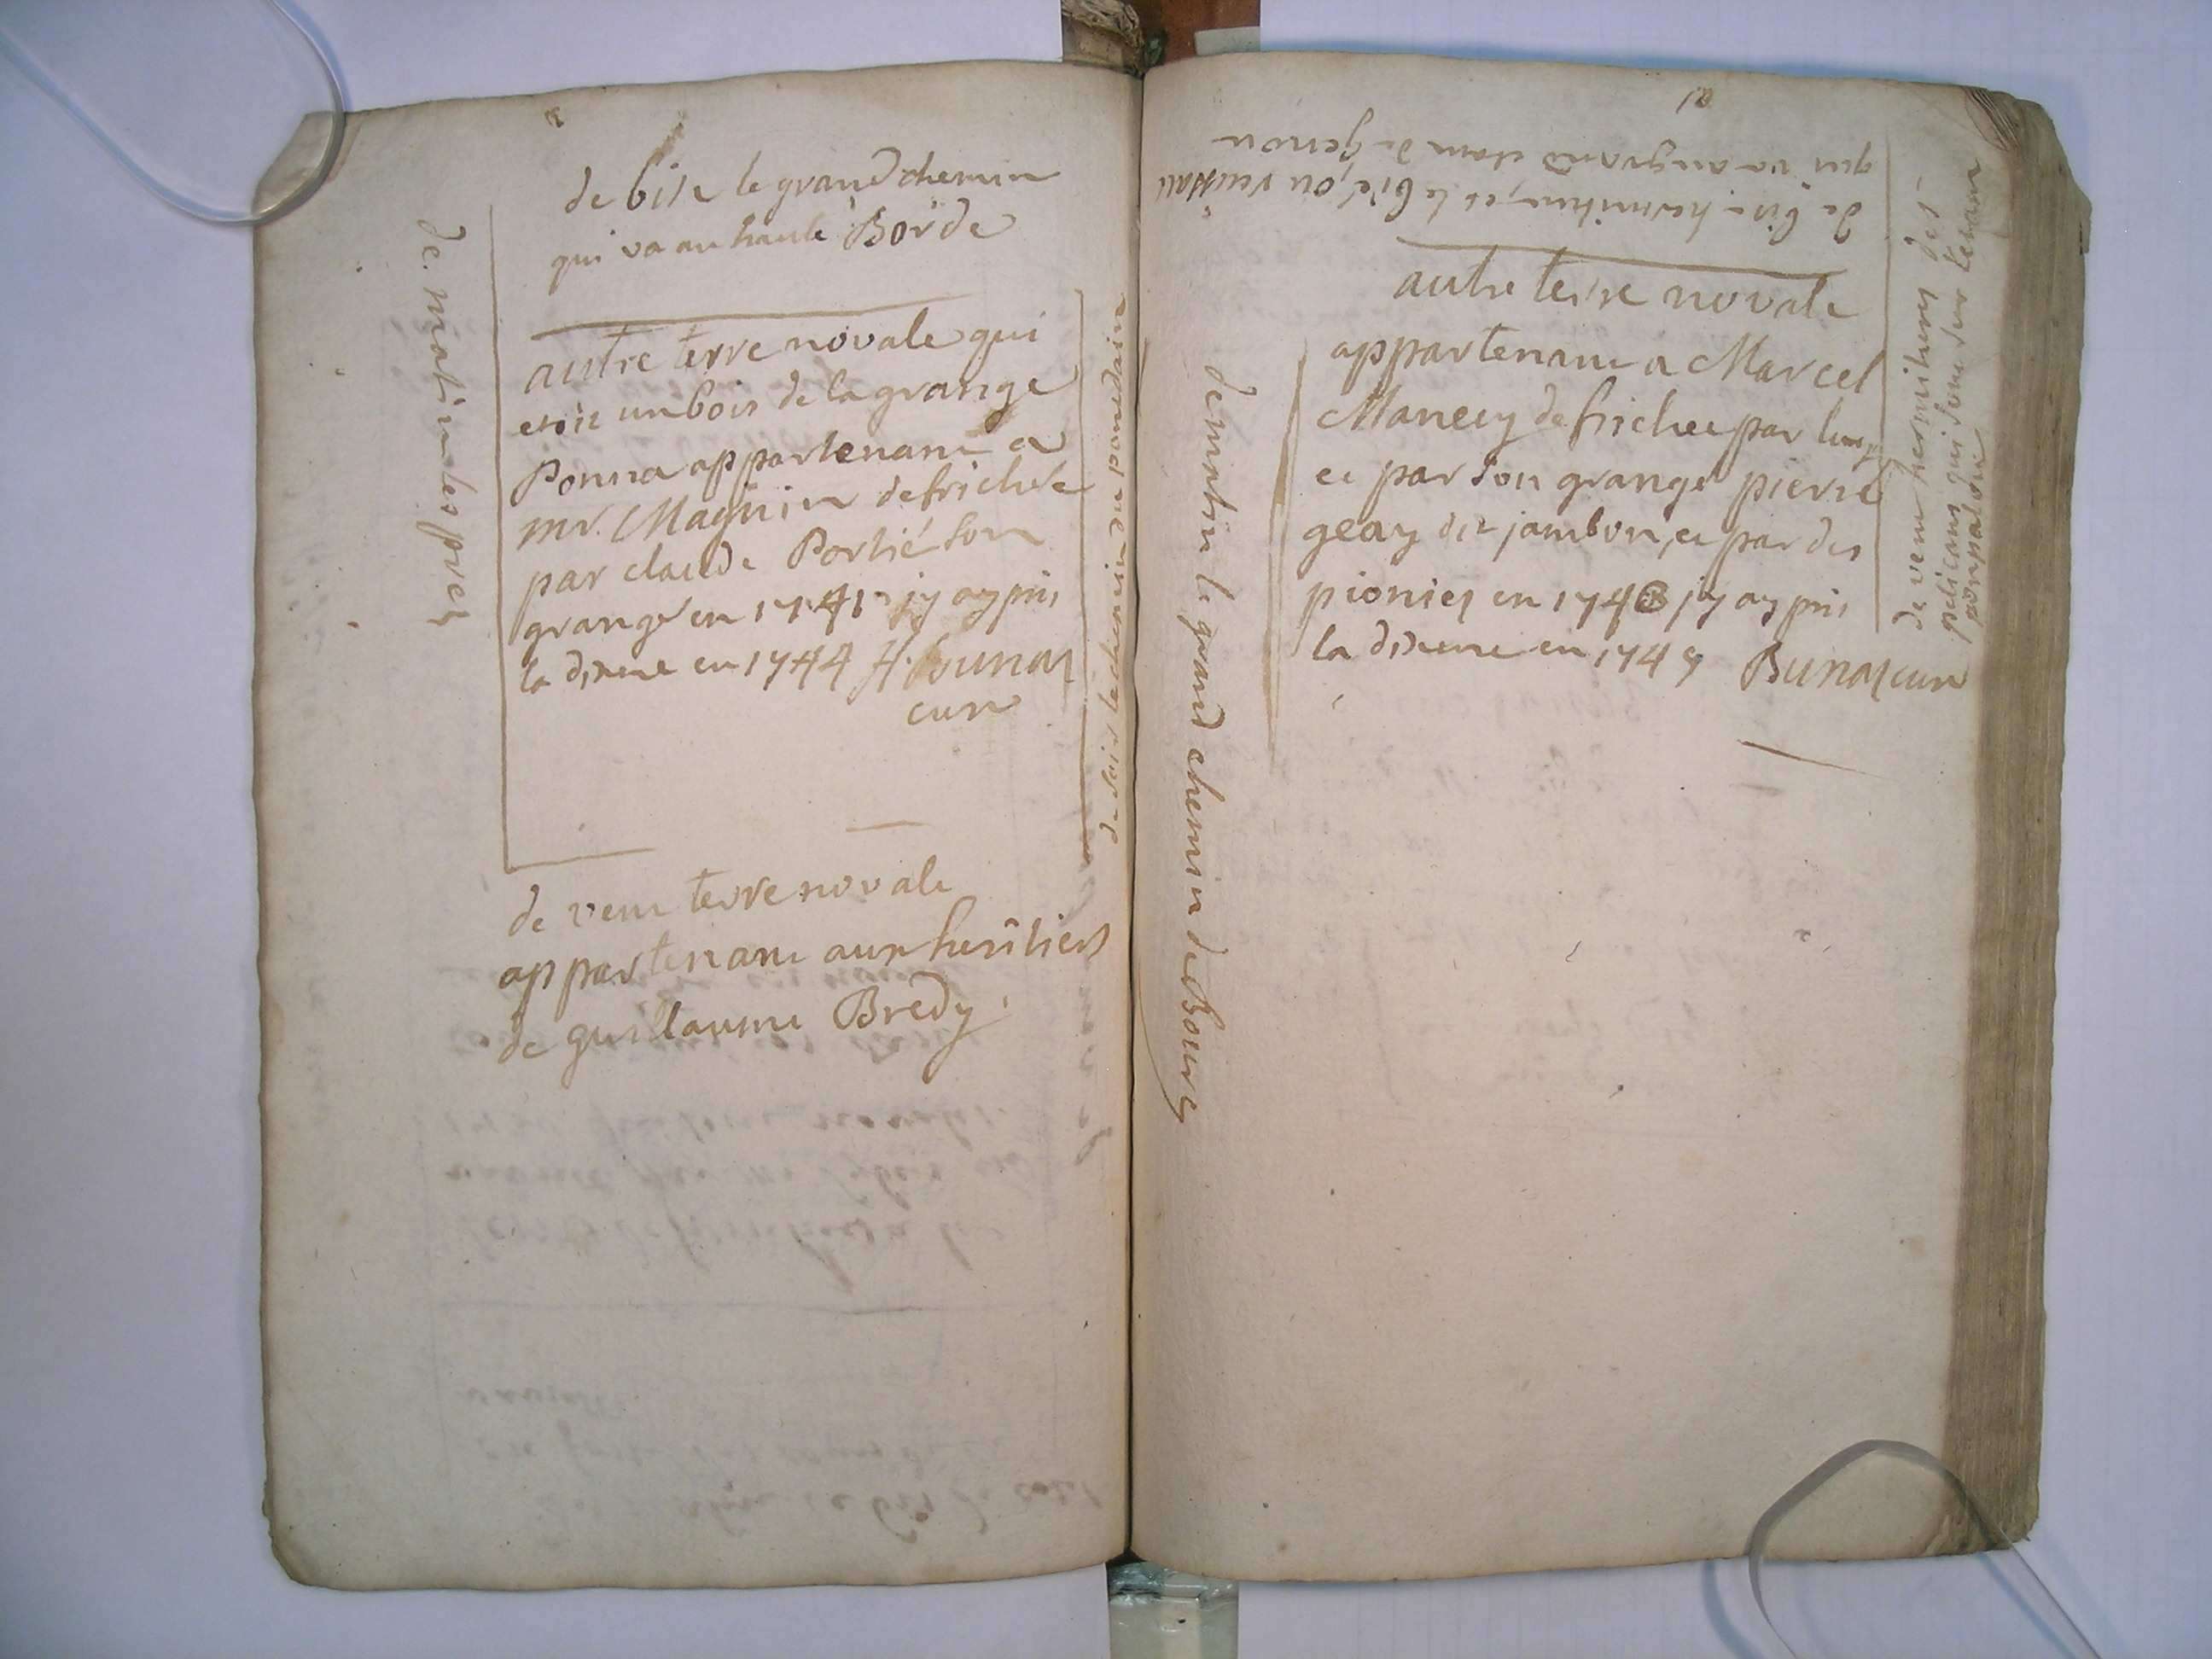 de bise le grand chemin
qui va au haute Borde
de matin les prez
autre terre novale qui
etoit un bois de la grange
Ponna appartenant a
mr. Magnin defrichée
par claude Portié son
grangé en 1741 jy ay pris
la dixme en 1744 H. Bunaz
cure
de soir le chemin du
de vent terre novale
appartenant aux heritiers
de guillaume Bredy
de bise hermiture, et le bié, ou ruissau
qui va au grand etam de genou
autre terre novale
appartenant a Marcel
Manecy defrichee par luy
et par son grangé pierre
geay dit jambon, et par des
pioniez en 174 jy ay pris
la dixme en 1749 Bunaz cure
de matin le grand chemin de Bourg
de vent hermitures des
pelicans qui sont sur letam